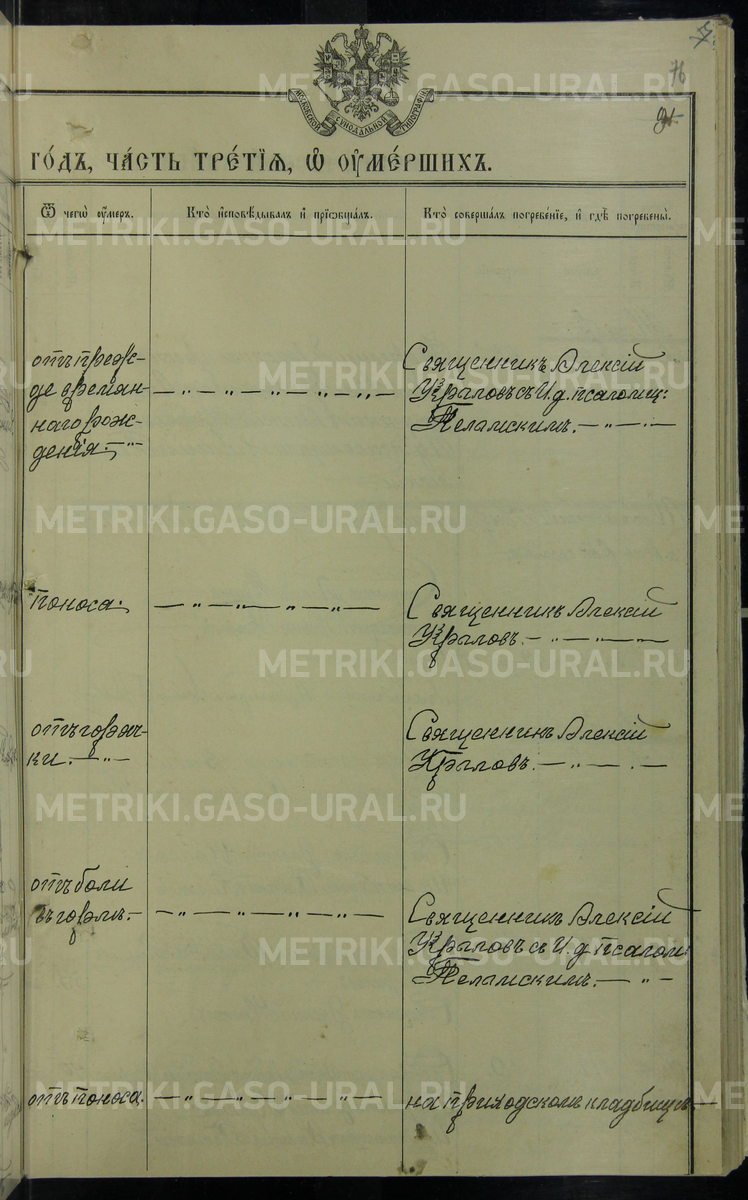 76
МОСКОВСКОЙ СѴНОДАЛЬНОЙ ТИПОГРАФІИ
ГО́ДЪ, ЧА́СТЬ ТРЕ́ТІѦ, Ѡ҆ ОУ҆МЕ́РШИХЪ.
Ѿ чегѡ̀ оу҆́меръ.
Кто̀ и҆сповѣ́дывалъ и҆ прїѡбща́лъ.
Кто̀ соверша́лъ погребе́нїе, и҆ гдѣ̀ погребены̀.
отъ преж-
де времян-
наго рож-
денія. — "
— " — " — " — " — " —
Священникъ Алексій
Крыловъ съ И. д. псаломщ:
Пеламскимъ. — " — . —
поноса.
— " — " — " — " —
Священникъ Алексій
Крыловъ. — " — " —
отъ горяч-
ки. — " —
Священникъ Алексій
Крыловъ. — " — . —
отъ боли
въ горлѣ. —
— " — " — " — " —
Священникъ Алексій
Крыловъ съ И. д. псалом:
Пеламскимъ. — " —
отъ поноса.
— " — " — " — " —
на приходскомъ кладбищѣ. —
METRIKI.GASO-URAL.RU